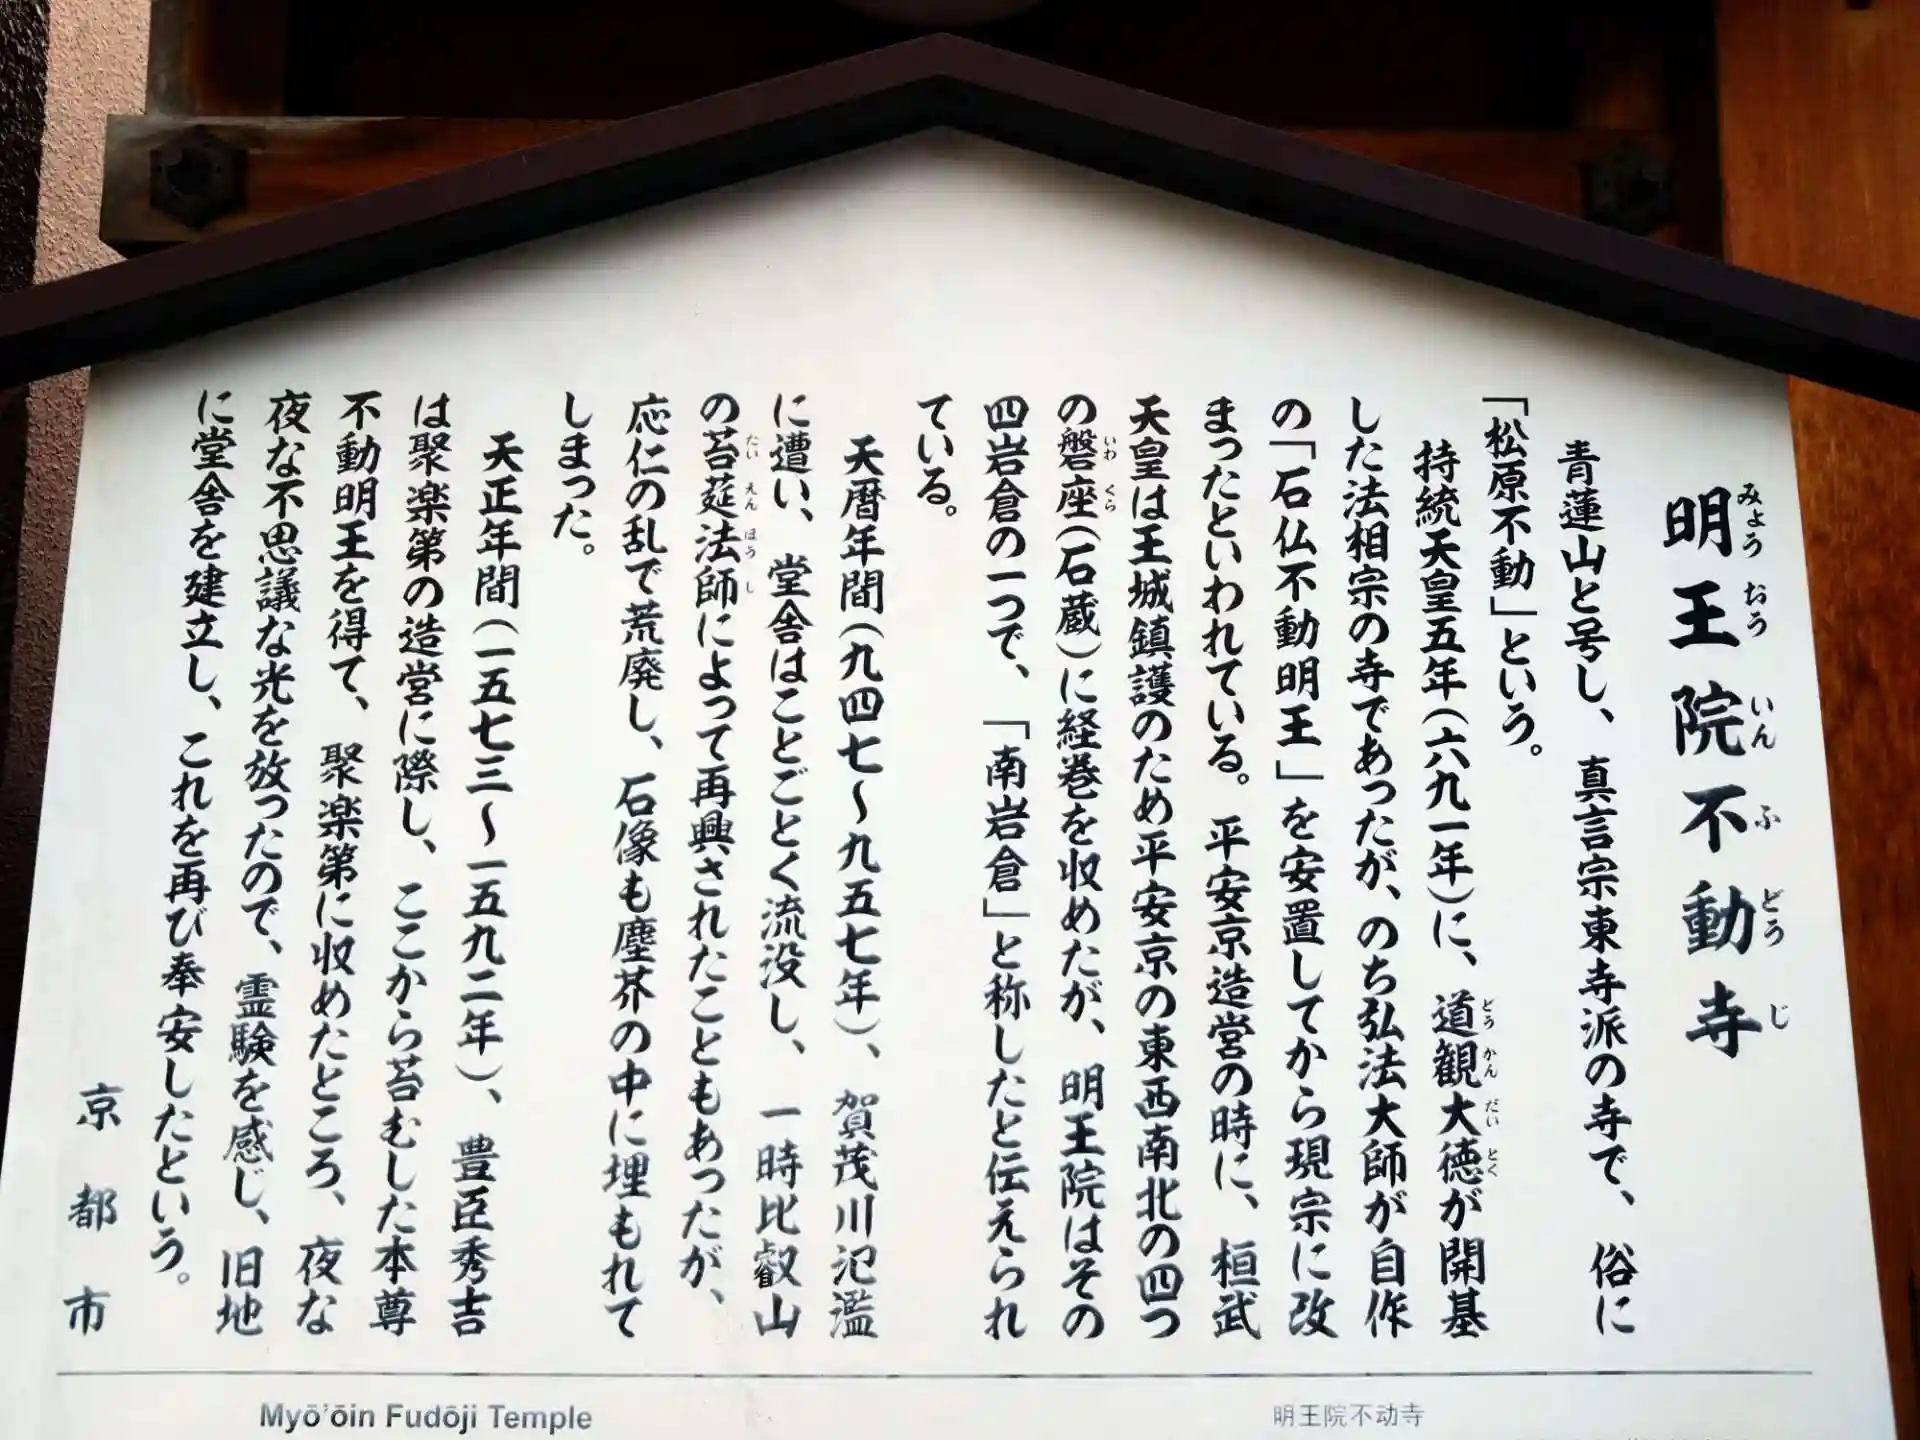 明王院不動寺
みょうおういんふどうじ
青蓮山と号し、真言宗東寺派の寺で、俗に
「松原不動」という。
持統天皇五年(六九一年)に、道観大徳が開基
どうかんだいとく
した法相宗の寺であったが、のち弘法大師が自作
の「石仏不動明王」を安置してから現宗に改
まったといわれている。平安京造営の時に、桓武
天皇は王城鎮護のため平安京の東西南北の四つ
の磐座(石蔵)に経巻を収めたが、明王院はその
いわくら
四岩倉の一つで、「南岩倉」と称したと伝えられ
ている。
天暦年間(九四七〜九五七年)、賀茂川氾濫
に遭い、堂舎はことごとく流没し、一時比叡山
の苔莚法師によって再興されたこともあったが、
たいえんほうし
応仁の乱で荒廃し、石像も塵芥の中に埋もれて
しまった。
天正年間(一五七三〜一五九二年)、豊臣秀吉
は聚楽第の造営に際し、ここから苔むした本尊
不動明王を得て、聚楽第に収めたところ、夜な
夜な不思議な光を放ったので、霊験を感じ、旧地
に堂舎を建立し、これを再び奉安したという。
京都市
Myō’ōin Fudōji Temple
明王院不动寺